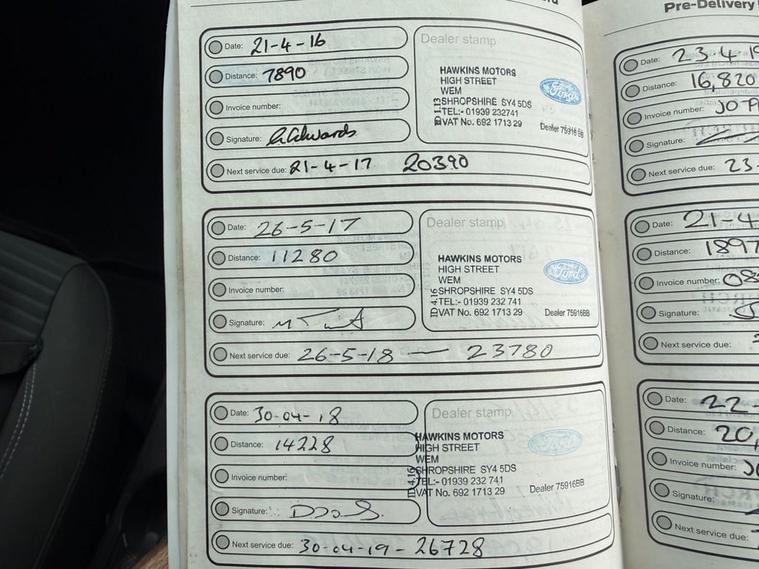 Pre-Delivery
Date: 21-4-16
Distance: 7890
Invoice number:
Signature:
Next service due: 21-4-17 20390
Dealer stamp
HAWKINS MOTORS
HIGH STREET
WEM
SHROPSHIRE SY4 5DS
TEL:- 01939 232741
VAT No. 692 1713 29
Ford
Dealer 75916 BB
Date: 26-5-17
Distance: 11280
Invoice number:
Signature:
Next service due: 26-5-18 — 23780
Dealer stamp
HAWKINS MOTORS
HIGH STREET
WEM
SHROPSHIRE SY4 5DS
TEL:- 01939 232 741
VAT No. 692 1713 29
ID 4.16
Ford
Dealer 75916BB
Date: 30-04-18
Distance: 14228
Invoice number:
Signature:
Next service due: 30-04-19 - 26728
Dealer stamp
HAWKINS MOTORS
HIGH STREET
WEM
SHROPSHIRE SY4 5DS
TEL:- 01939 232 741
VAT No. 692 1713 29
ID 4.16
Ford
Dealer 75916BB
Date: 23.4.19
Distance: 16,820
Invoice number:
Signature:
Next service due: 23-
Date: 21-4
Distance: 1897
Invoice number:
Signature:
Next service due:
Date: 22-
Distance: 20,
Invoice number:
Signature:
Next service due: